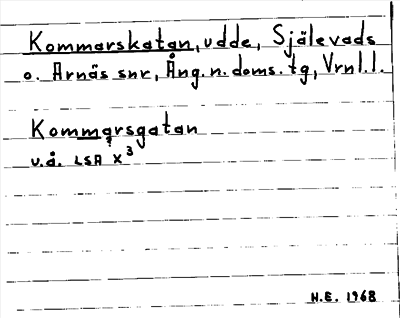 Kommarskatan, udde, Själevads
o. Arnäs snr, Ång. n. doms. tg, Vrnl.l.
Kommarsgatan
u.å. LSA X3
H.E. 1968